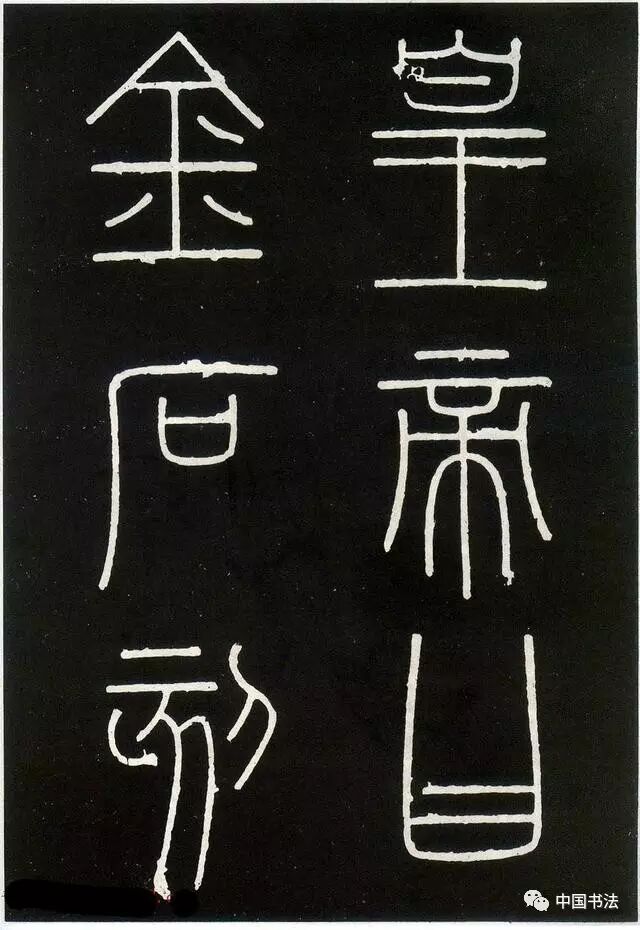 皇帝曰
金石刻
中国书法